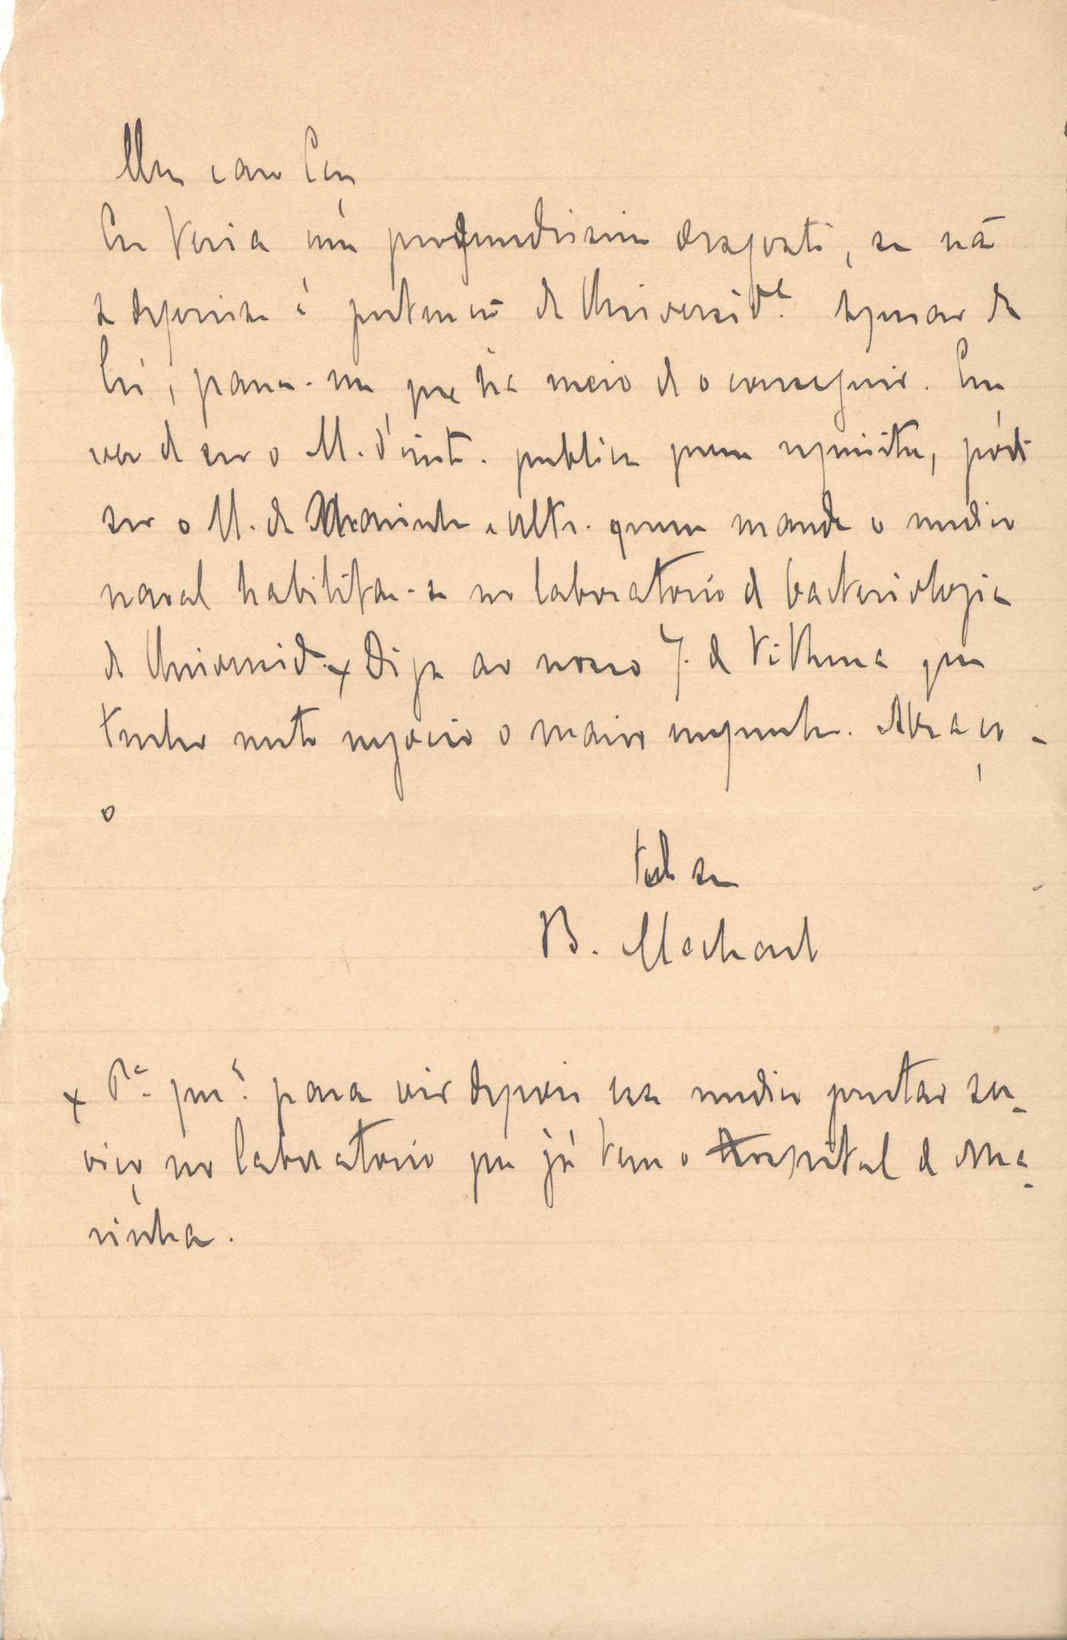 Meu caro Cer,
Eu teria um profundissimo desgosto, se não
se deferisse á pretenção da Universid.e Apesar da
lei, parece-me que ha meio de o conseguir. Em
vez de ser o M. d'inst. publica quem requisita, póde
ser o M. da Marinha e Ultr. quem mande o medico
naval habilitar-se no laboratorio de bacteriologia
da Universid.e x Diga ao nosso J. de Vilhena que
tenho neste negocio o maior empenho. Abraça-
o
todo seu
B. Machado
x P.a que? para vir depois esse medico prestar ser-
viço no laboratorio que já tem o hospital de Ma-
rinha.